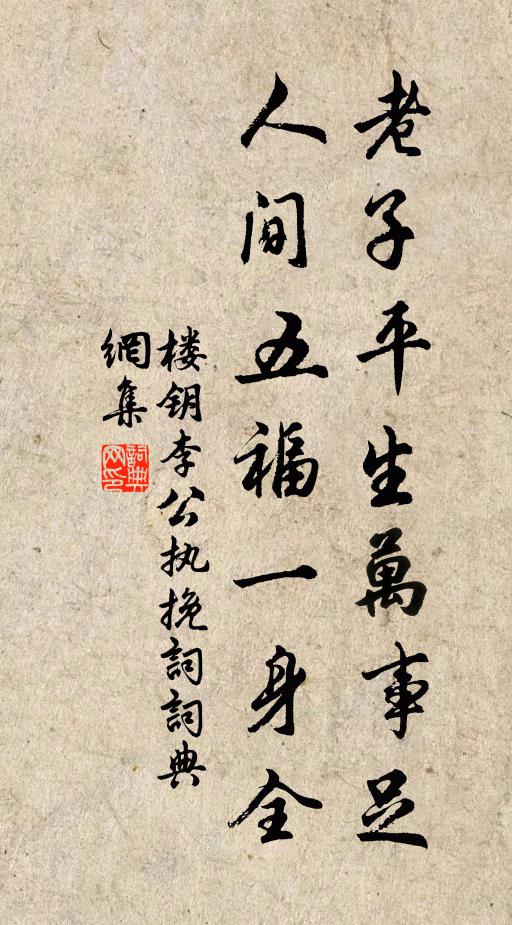 老子平生萬事足
人间五福一身全
楼钥李公执挽詞詞典
網集
詞典網印